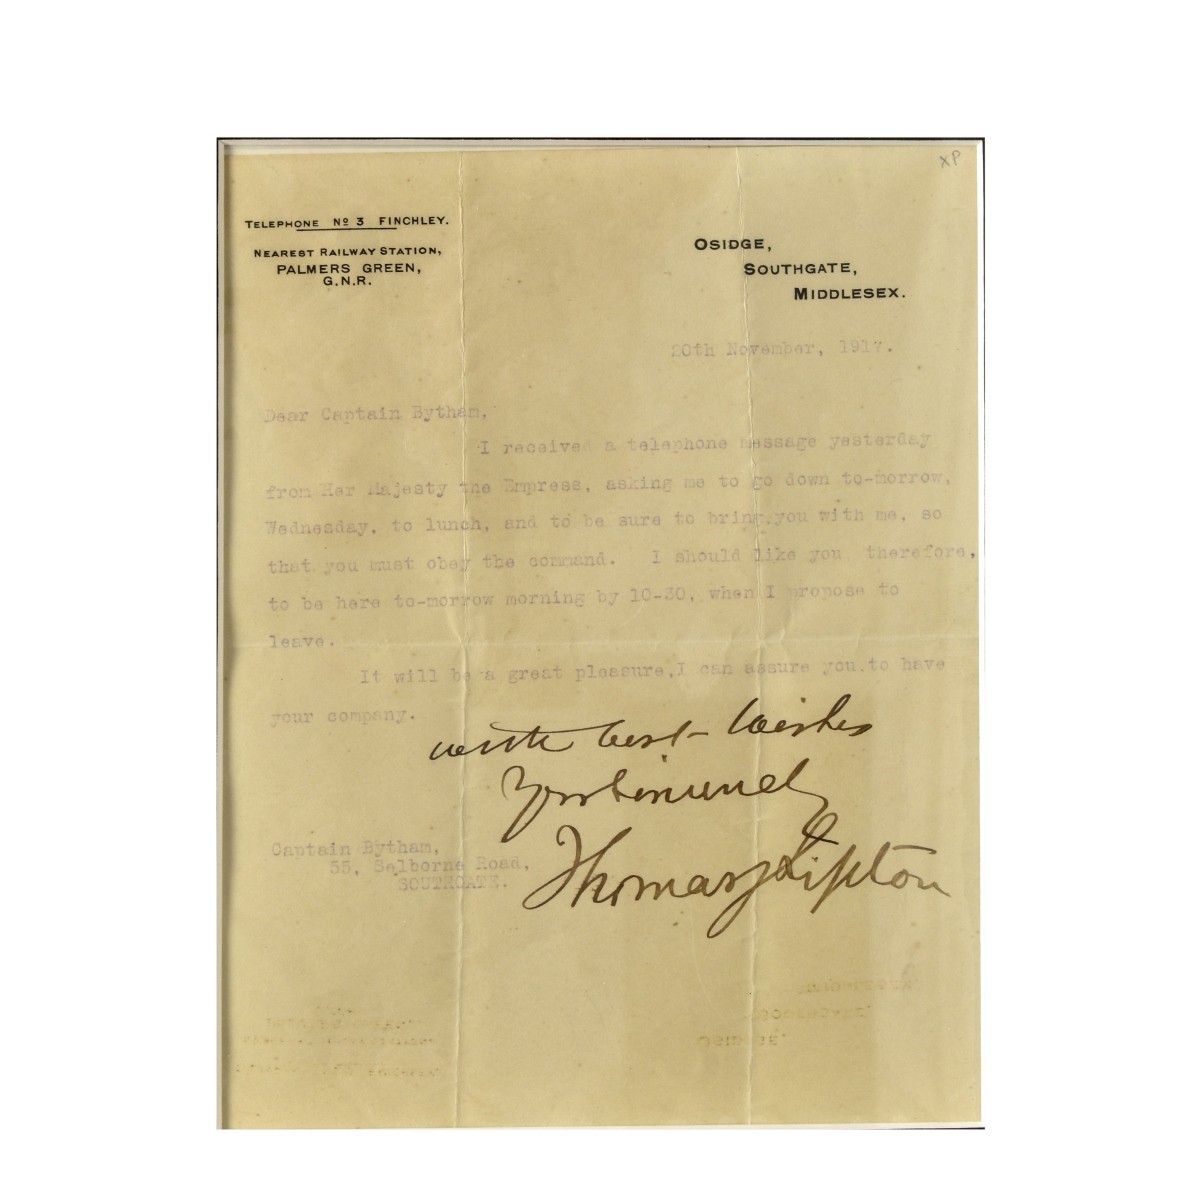 XP
TELEPHONE Nº 3 FINCHLEY.
NEAREST RAILWAY STATION,
PALMERS GREEN,
G.N.R.
OSIDGE,
SOUTHGATE,
MIDDLESEX.
20th November, 1917.
Dear Captain Bytham,
I received a telephone message yesterday
from Her Majesty the Empress, asking me to go down to-morrow,
Wednesday, to lunch, and to be sure to bring you with me, so
that you must obey the command. I should like you therefore,
to be here to-morrow morning by 10-30, when I propose to
leave.
It will be a great pleasure, I can assure you, to have
your company.
with best wishes
Thomas J Lipton
Captain Bytham,
55, Selborne Road,
SOUTHGATE.